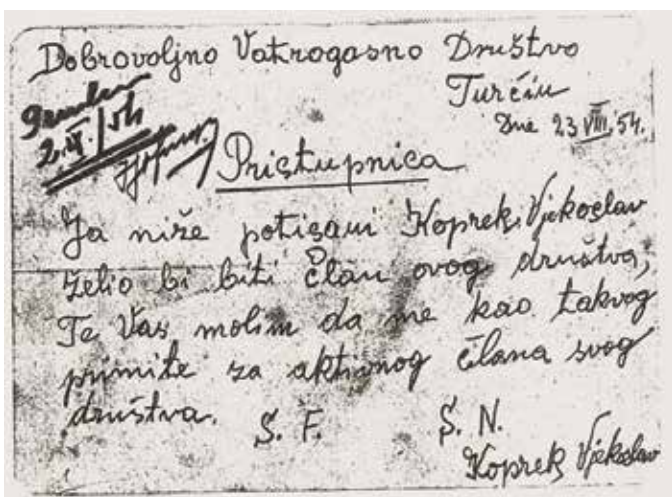 Dobrovoljno Vatrogasno Društvo
Turčin
Dne 23 VIII. 54.
2. IX. 54
Pristupnica
Ja niže potisani Koprek Vjekoslav
želio bi biti član ovog društva,
Te Vas molim da me kao takvog
primite za aktivnog člana svog
društva. S. F. S. N.
Koprek Vjekoslav